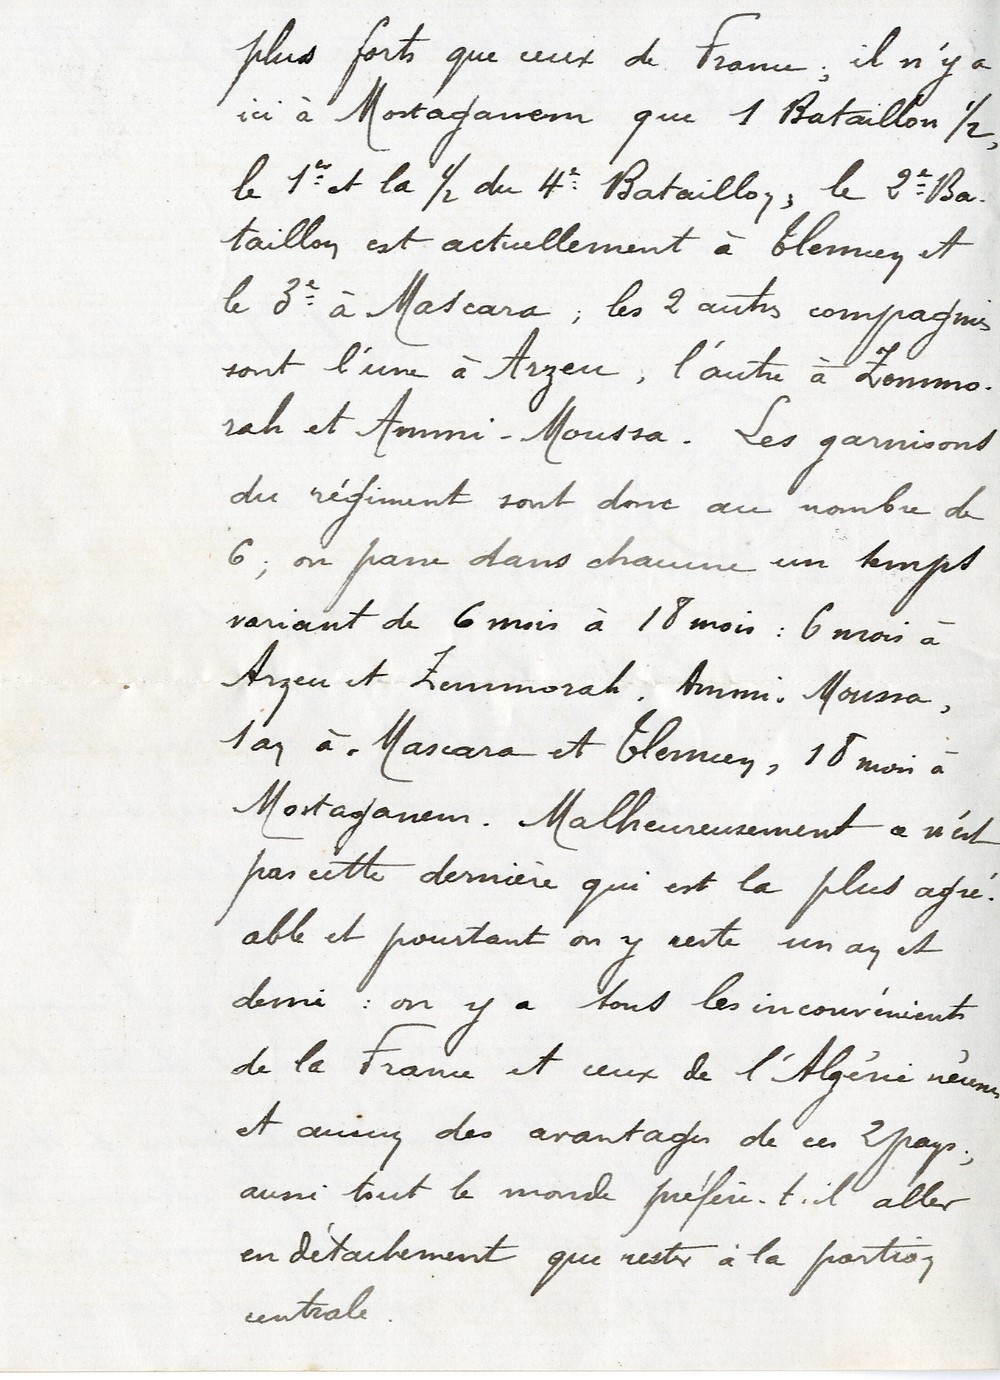 plus forts que ceux de France ; il n'y a
ici à Mostaganem que 1 Bataillon 1/2,
le 1er et la 1/2 du 4e Bataillon ; le 2e Ba-
taillon est actuellement à Tlemcen et
le 3e à Mascara ; les 2 autres compagnies
sont l'une à Arzeu, l'autre à Zemmo-
rah et Ammi-Moussa. Les garnisons
du régiment sont donc au nombre de
6 ; on passe dans chacune un temps
variant de 6 mois à 18 mois : 6 mois à
Arzeu et Zemmorah. Ammi-Moussa,
1 an à Mascara et Tlemcen, 18 mois à
Mostaganem. Malheureusement ce n'est
pas cette dernière qui est la plus agré-
able et pourtant on y reste un an et
demi : on y a tous les inconvénients
de la France et ceux de l'Algérie réunis
et aucun des avantages de ces 2 pays ;
aussi tout le monde préfère-t-il aller
en détachement que rester à la portion
centrale.